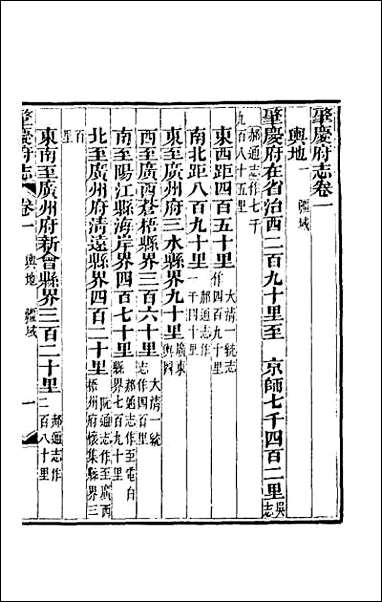 肇慶府志卷一
輿地一 疆域
肇慶府在省治西二百九十里至 京師七千四百二里吳志
郝通志作七千九百八十五里
東西距四百五十里大清一統志作四百九十里
南北距八百九十里郝通志作一千四十里
東至廣州府三水縣界九十里廣東輿圖
西至廣西蒼梧縣界三百六十里大清一統志作四百里
南至陽江縣海岸界四百七十里郝通志作至電白縣界七百九十里
北至廣州府清遠縣界四百二十里阮通志作至廣西梧州府懷集縣界三
百里
東南至廣州府新會縣界三百二十里郝通志作二百八十里
肇慶府志 卷一 輿地 疆域 一